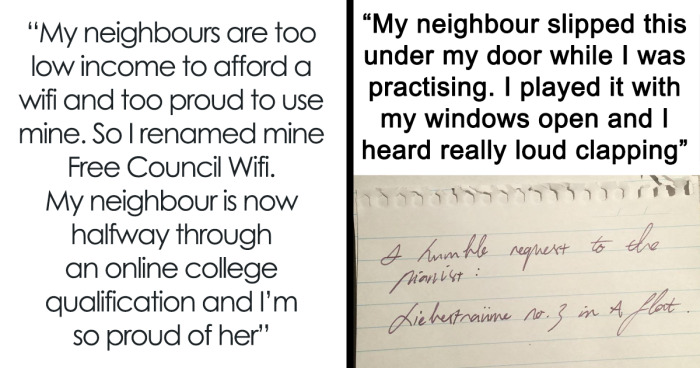 “My neighbours are too
low income to afford a
wifi and too proud to use
mine. So I renamed mine
Free Council Wifi.
My neighbour is now
halfway through
an online college
qualification and I’m
so proud of her”
“My neighbour slipped this
under my door while I was
practising. I played it with
my windows open and I
heard really loud clapping”
A humble request to the
pianist :
Liebestraüme no. 3 in A flat.